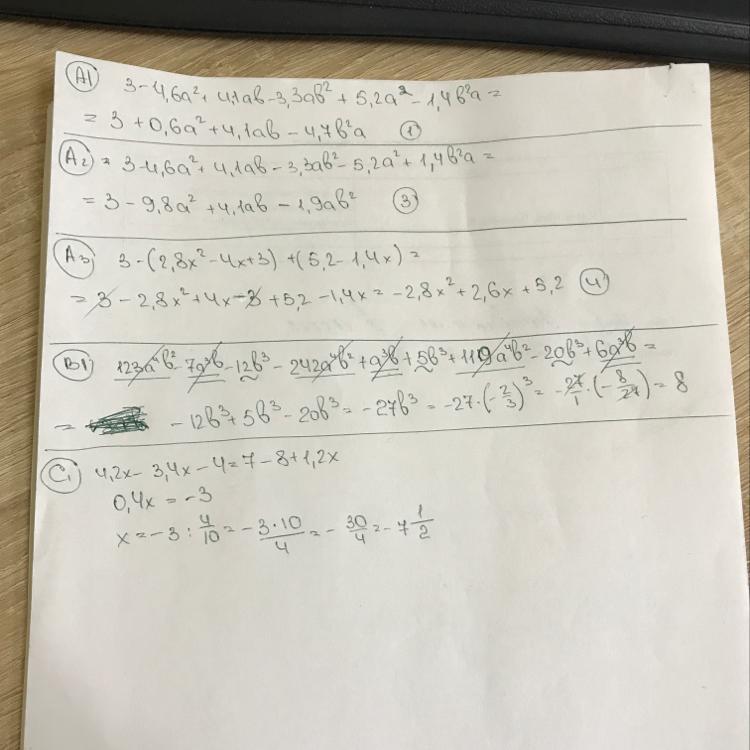 A1 3-4,6a²+4,1ab-3,3ab²+5,2a²-1,4b²a=
=3+0,6a²+4,1ab-4,7b²a 1
A2 =3-4,6a²+4,1ab-3,3ab²-5,2a²+1,4b²a=
=3-9,8a²+4,1ab-1,9ab² 3
A3 3-(2,8x²-4x+3)+(5,2-1,4x)=
=3-2,8x²+4x-3+5,2-1,4x=-2,8x²+2,6x+5,2 4
B1 123a⁴b²-7a³b-12b³-242a⁴b²+a³b+5b³+119a⁴b²-20b³+6a³b=
= -12b³+5b³-20b³=-27b³=-27·(-2/3)³=-27/1·(-8/27)=8
C1 4,2x-3,4x-4=7-8+1,2x
0,4x=-3
x=-3:4/10=-3·10/4=-30/4=-7 1/2